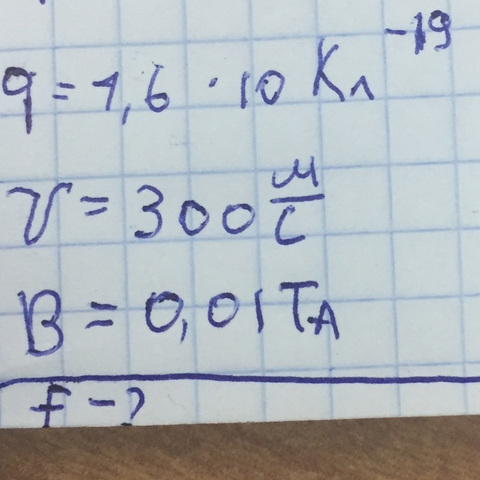 q = 1,6 · 10 Кл⁻¹⁹
v = 300 м/с
B = 0,01 Тл
F - ?